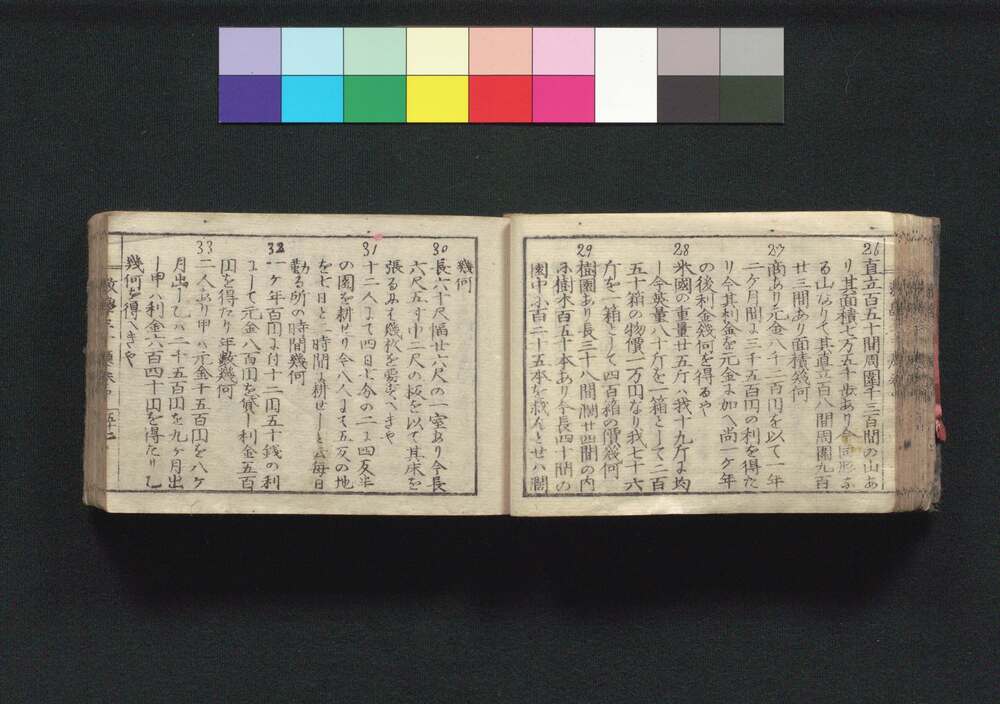 26
直立百五十間周圍千三百間の山あ
り其面積七万五千歩あり今同形な
る山ありて其直立百八間周圍九百
廿三間あり面積幾何
27
商あり元金八千二百円を以て一年
二ケ月間に三千五百円の利を得た
り今其利金を元金に加へ尚一ケ年
の後利金幾何を得るや
28
米國の重量廿五斤ハ我十九斤に均
し今英量八十斤を一箱として二百
五十箱の物價一万円なり我七十六
斤を一箱として四百箱の價幾何
29
樹園あり長三十八間濶廿四間の内
に樹木百五十本あり今長四十間の
園中に百二十五本を栽んとせハ濶
幾何
30
長六十尺幅廿六尺の一室あり今長
六尺五寸巾二尺の板を以て其床を
張るにハ幾枚を要すへきや
31
十二人にて四日と分の二に四反半
の圃を耕せり今八人にて五反の地
を七日と二時間に耕せしと云毎日
勤る所の時間幾何
32
一ケ年百円に付十二円五十銭の利
にして元金八百円を貸し利金五百
円を得たり年數幾何
33
二人あり甲ハ元金千五百円を八ケ
月出し乙ハ二千五百円を九ケ月出
し甲ハ利金六百四十円を得たり乙
幾何を得へきや